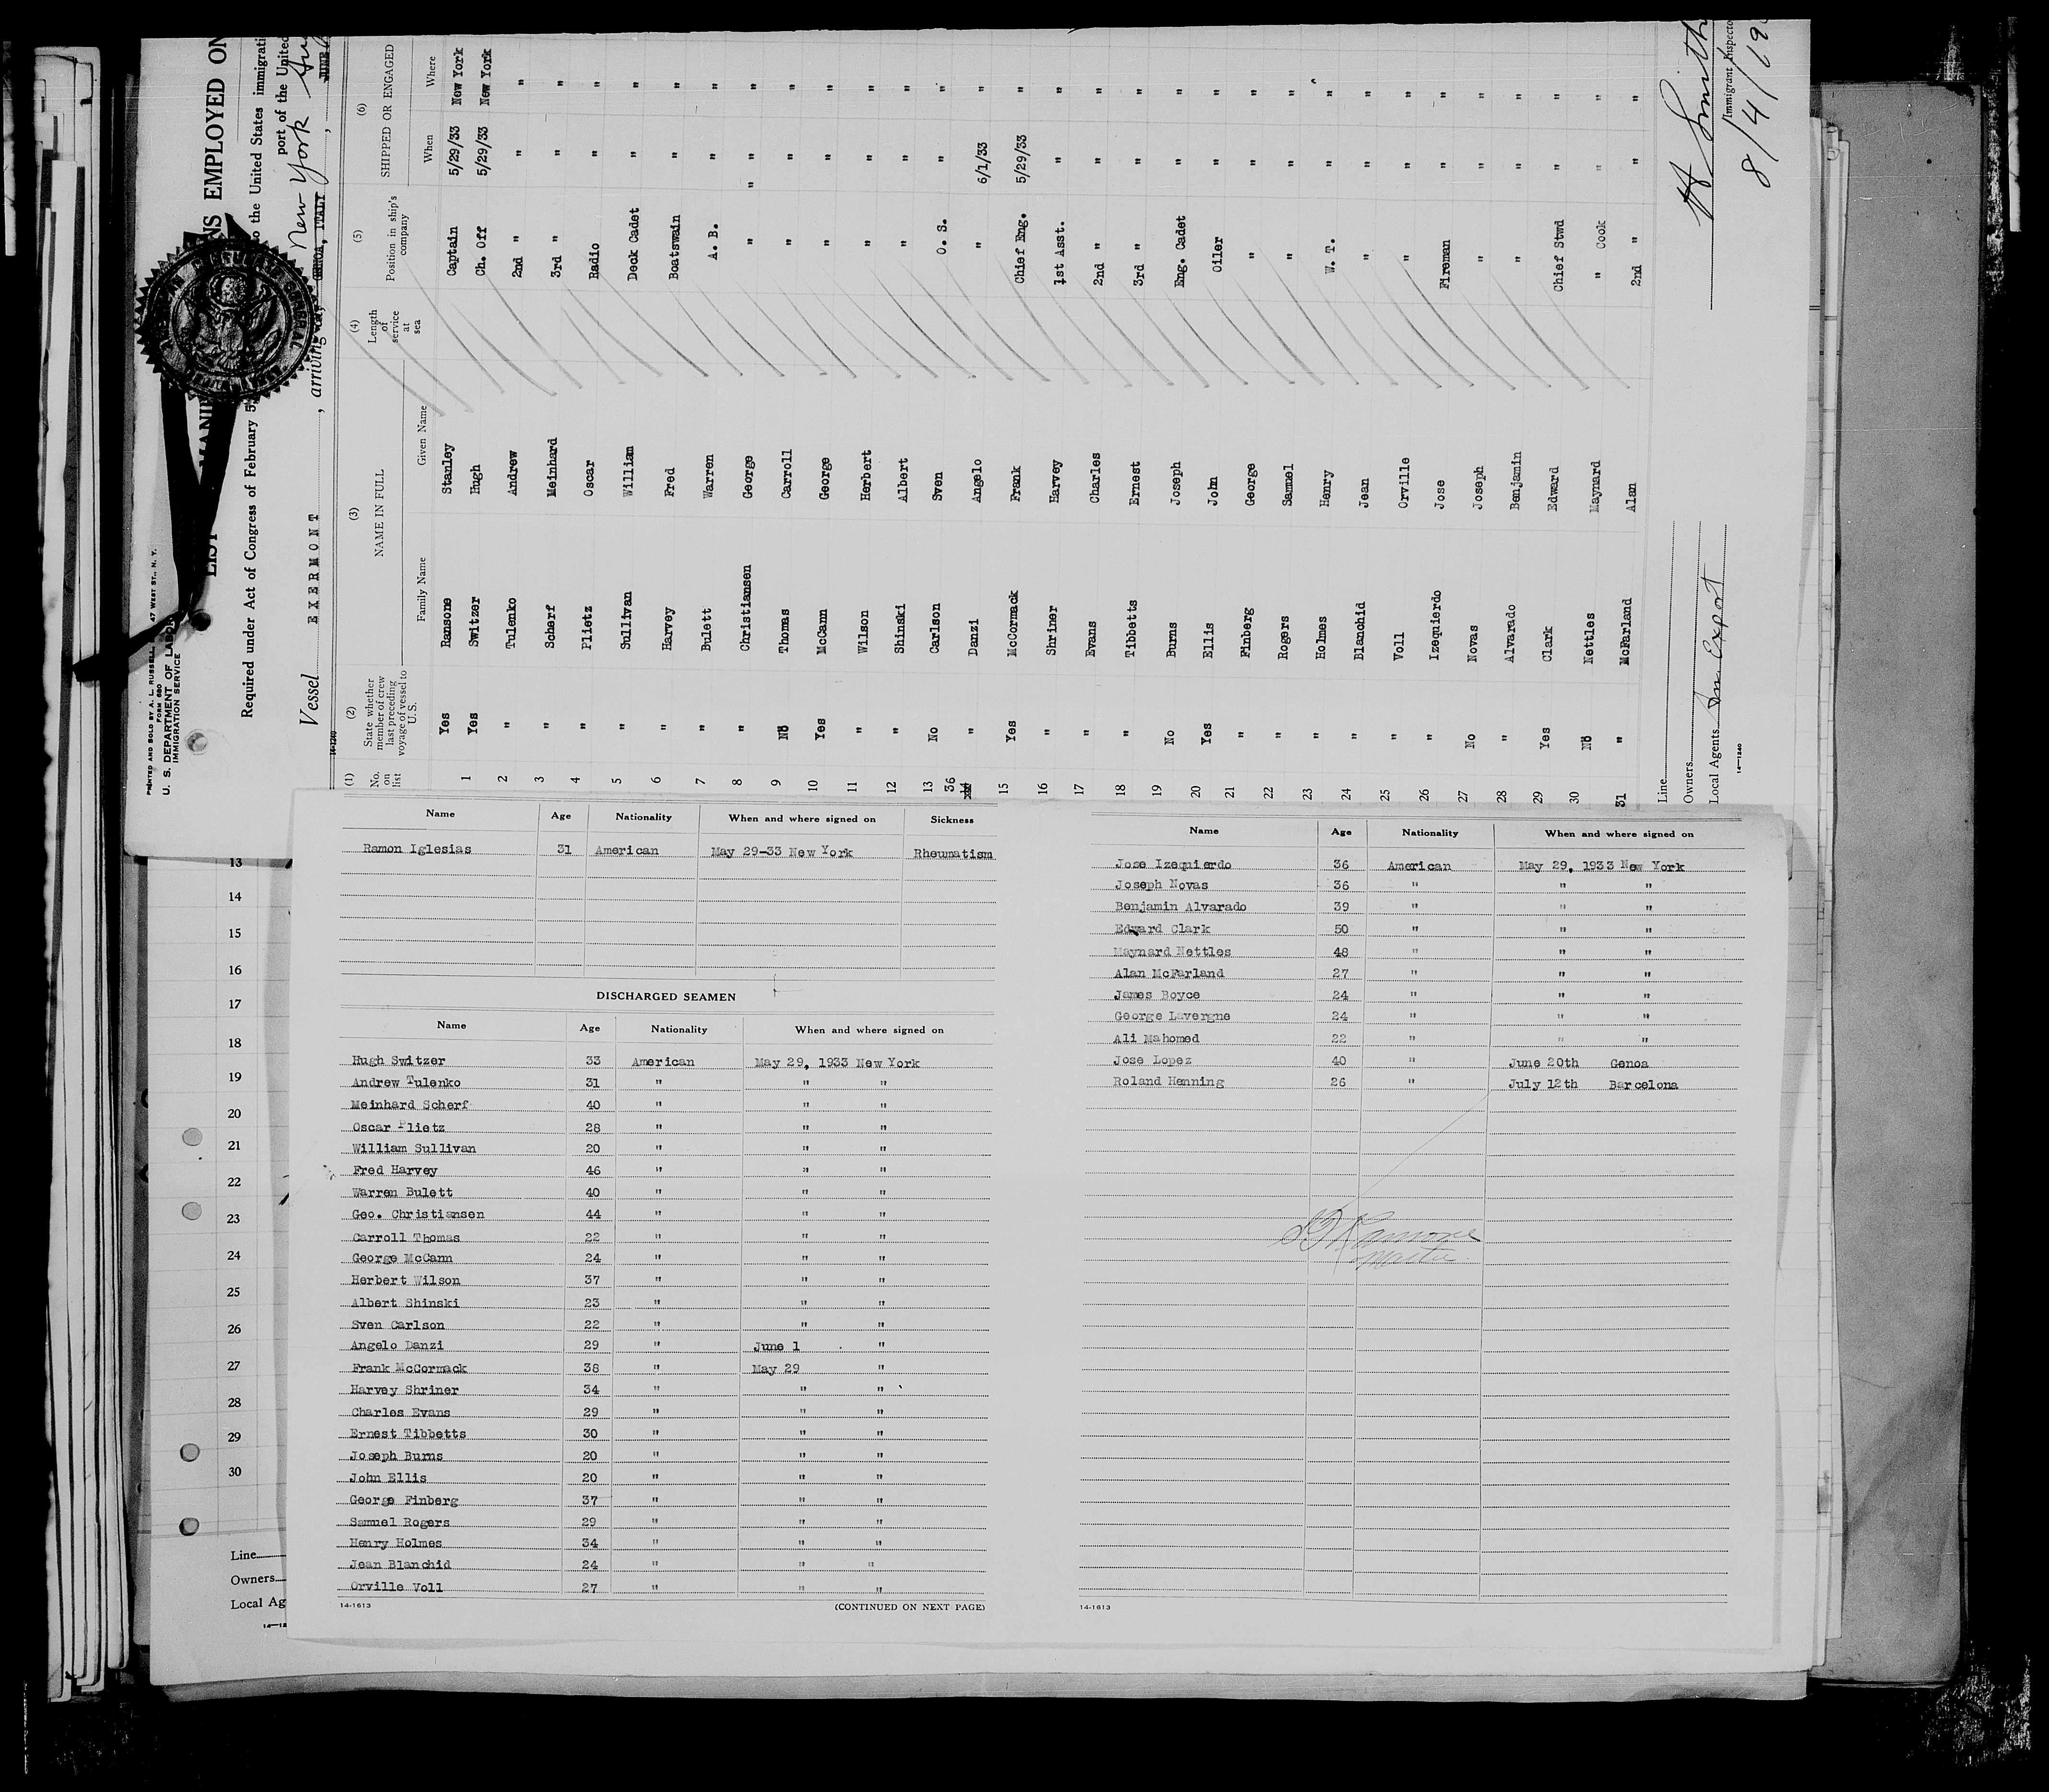 PRINTED AND SOLD BY A. L. RUSSELL, 47 WEST ST., N. Y.
FORM 680
U. S. DEPARTMENT OF LABOR
IMMIGRATION SERVICE
LIST
NS EMPLOYED ON
Required under Act of Congress of February 5
o the United States immigrati
port of the United
Vessel EXERMONT , arriving at New York
GENOA, ITALY JUNE
14-1240
(1) No. on list (2) State whether member of crew last preceding voyage of vessel to U. S. (3) NAME IN FULL Family Name Given Name (4) Length of service at sea (5) Position in ship's company (6) SHIPPED OR ENGAGED When Where
Yes Ransone Stanley Captain 5/29/33 New York
1 Yes Switzer Hugh Ch. Off 5/29/33 New York
2 " Tulenko Andrew 2nd " " "
3 " Scherf Meinhard 3rd " " "
4 " Plietz Oscar Radio " "
5 " Sullivan William Deck Cadet " "
6 " Harvey Fred Boatswain " "
7 " Bulett Warren A. B. " "
8 " Christiansen George " " " "
9 No Thomas Carroll " " "
10 Yes McCann George " " "
11 " Wilson Herbert " " "
12 " Shinski Albert " " "
13 No Carlson Sven O. S. " "
36 14 " Danzi Angelo " 6/1/33 "
15 Yes McCormack Frank Chief Eng. 5/29/33 "
16 " Shriner Harvey 1st Asst. " "
17 " Evans Charles 2nd " " "
18 " Tibbetts Ernest 3rd " " "
19 No Burns Joseph Eng. Cadet " "
20 Yes Ellis John Oiler " "
21 " Finberg George " " "
22 " Rogers Samuel " " "
23 " Holmes Henry W. T. " "
24 " Blanchid Jean " " "
25 " Voll Orville " " "
26 " Izequierdo Jose Fireman " "
27 No Novas Joseph " "
28 " Alvarado Benjamin " " "
29 Yes Clark Edward Chief Stwd " "
30 No Nettles Maynard " Cook " "
31 " McFarland Alan 2nd " " "
Line
Owners
Local Agents Am Export
14-1240
Smith
Immigrant Inspector
8/4/19
Name Age Nationality When and where signed on Sickness
Ramon Iglesias 31 American May 29-33 New York Rheumatism
DISCHARGED SEAMEN
Name Age Nationality When and where signed on
Hugh Switzer 33 American May 29, 1933 New York
Andrew Tulenko 31 " " "
Meinhard Scherf 40 " " "
Oscar Plietz 28 " " "
William Sullivan 20 " " "
Fred Harvey 46 " " "
Warren Bulett 40 " " "
Geo. Christiansen 44 " " "
Carroll Thomas 22 " " "
George McCann 24 " " "
Herbert Wilson 37 " " "
Albert Shinski 23 " " "
Sven Carlson 22 " " "
Angelo Danzi 29 " June 1 "
Frank McCormack 38 " May 29 "
Harvey Shriner 34 " " "
Charles Evans 29 " " "
Ernest Tibbetts 30 " " "
Joseph Burns 20 " " "
John Ellis 20 " " "
George Finberg 37 " " "
Samuel Rogers 29 " " "
Henry Holmes 34 " " "
Jean Blanchid 24 " " "
Orville Voll 27 " " "
14-1613 (CONTINUED ON NEXT PAGE)
Name Age Nationality When and where signed on
Jose Izequierdo 36 American May 29, 1933 New York
Joseph Novas 36 " " "
Benjamin Alvarado 39 " " "
Edward Clark 50 " " "
Maynard Nettles 48 " " "
Alan McFarland 27 " " "
James Boyce 24 " " "
George Lavergne 24 " " "
Ali Mahomed 22 " " "
Jose Lopez 40 " June 20th Genoa
Roland Henning 26 " July 12th Barcelona
Ransone
Master
14-1613
13
14
15
16
17
18
19
20
21
22
23
24
25
26
27
28
29
30
Line
Owners
Local Ag